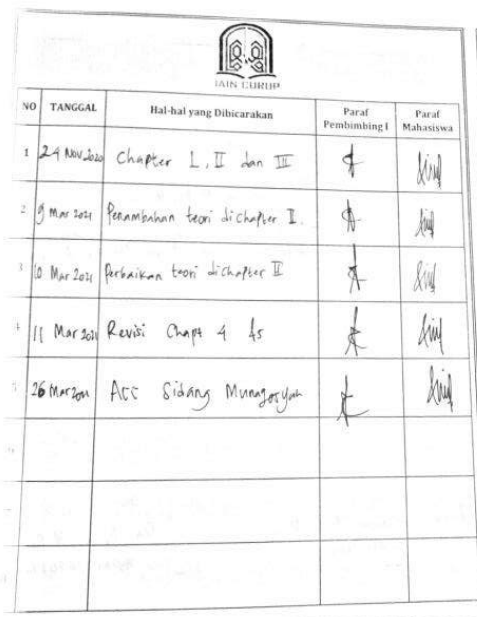 IAIN CURUP
NO TANGGAL Hal-hal yang Dibicarakan Paraf Pembimbing I Paraf Mahasiswa
1 24 Nov 2020 Chapter I, II dan III
2 9 Mar 2021 Penambahan teori di chapter II.
3 10 Mar 2021 Perbaikan teori di chapter II
4 11 Mar 2021 Revisi Chapt 4
26 Mar 2021 Acc Sidang Munaqosyah